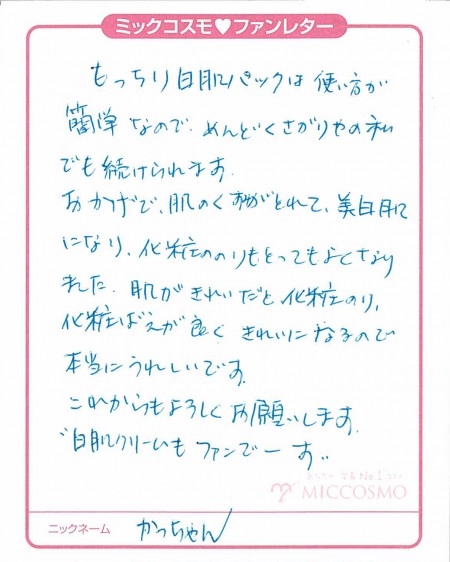 ミックコスモ♥ファンレター
もっちり白肌パックは使い方が
簡単なので、めんどくさがりやの私
でも続けられます。
おかげで、肌のくすみがとれて、美白肌
になり、化粧ののりもとってもよくなり
ました。肌がきれいだと化粧のり、
化粧ばえが良くきれいになるので
本当にうれしいです。
これからもよろしくお願いします。
"白肌クリームもファンでーす"
No.1
MICCOSMO
ニックネーム かっちゃん